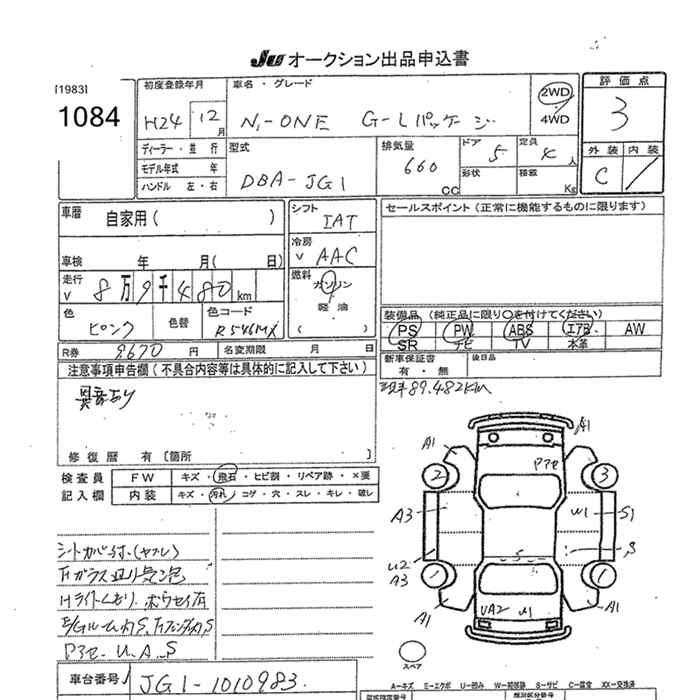 JU オークション出品申込書
[1983]
1084
初度登録年月
H24 12月
車名・グレード
N-ONE G-Lパッケージ
2WD
4WD
評価点
3
外装 内装
C /
ディーラー・並行
モデル年式 年
ハンドル 左・右
型式
DBA-JG1
排気量
660 CC
ドア 5
定員 4人
形状
積載 Kg
車歴
自家用( )
車検 年 月( 日)
走行 8万9千480km
シフト
IAT
冷房
AAC
燃料
ガソリン
軽油
( )
セールスポイント(正常に機能するものに限ります)
色
ピンク
色替
色コード
R546MX
装備品(純正品に限り○を付けてください)
PS PW ABS エアB AW
SR ナビ TV 本革
R券 8670円 名変期限 月 日
新車保証書
有・無
後日品
注意事項申告欄(不具合内容等は具体的に記入して下さい)
異音あり
現車89,482KM
修復歴 有〔箇所 〕
検査員
記入欄
FW キズ・飛石・ヒビ割・リペア跡・×要
内装 キズ・汚れ・コゲ・穴・スレ・キレ・破レ
A1 A1
P3セ
2 3
A3 W1 S1
S S
U2
A3
1 1
A1 UA2 U1 A1
シートカバー付(ヤブレ)
Fガラス辺り気泡
Hライトくもり、ボウセイ有
E/Gルーム内S、下廻り内S
P3セ U、A、S
スペア
車台番号 JG1-1010983
A…キズ E…エクボ U…凹み W…補修跡 S…サビ C…腐食 XX…交換済